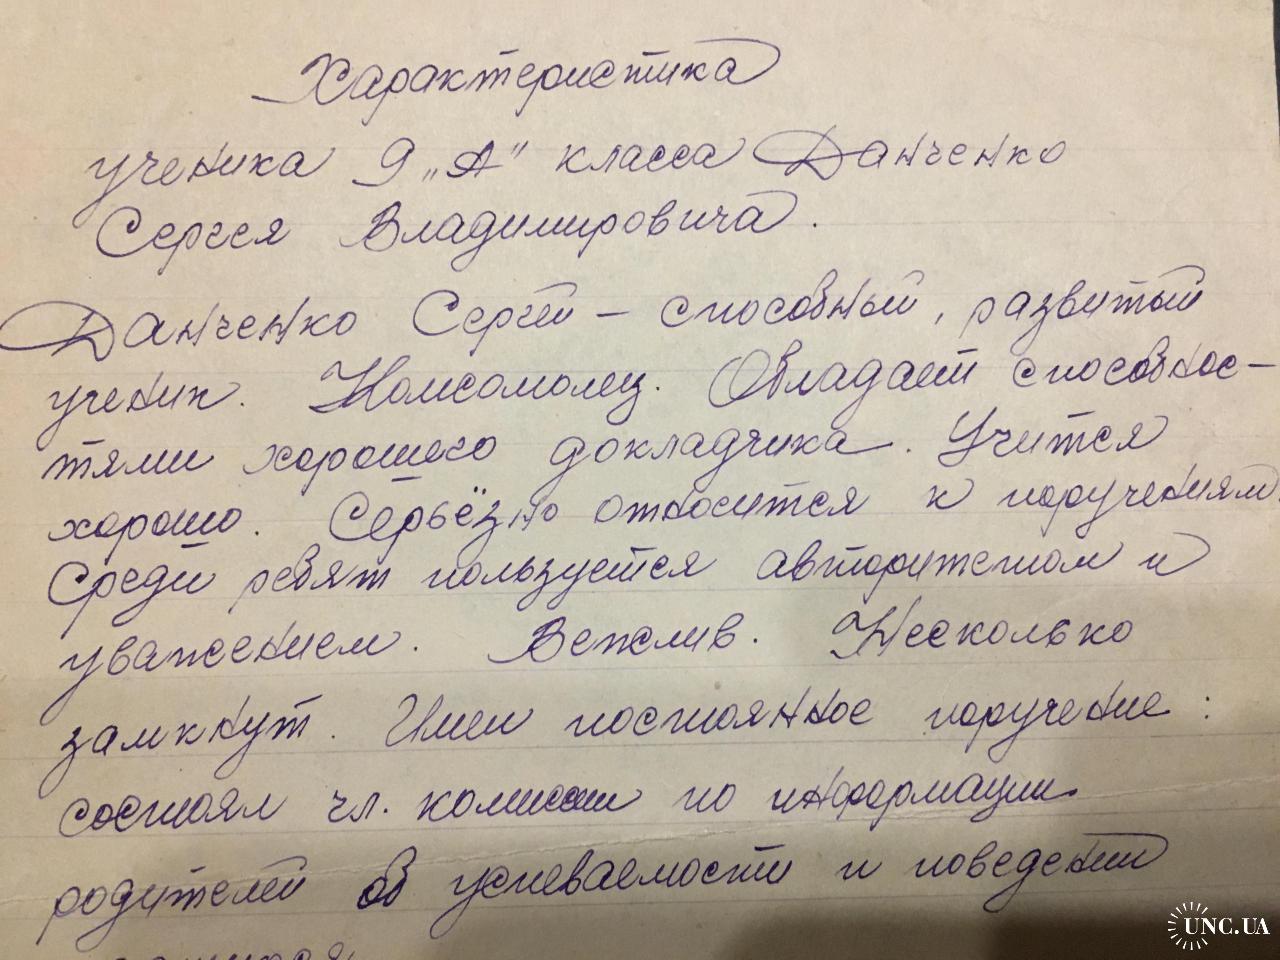 Характеристика
ученика 9 „А" класса Данченко
Сергея Владимировича.
Данченко Сергей – способный, развитый
ученик. Комсомолец. Обладает способнос-
тями хорошего докладчика. Учится
хорошо. Серьёзно относится к поручениям
Среди ребят пользуется авторитетом и
уважением. Вежлив. Несколько
замкнут. Имел постоянное поручение:
состоял чл. комиссии по информации
родителей об успеваемости и поведении
UNC.UA